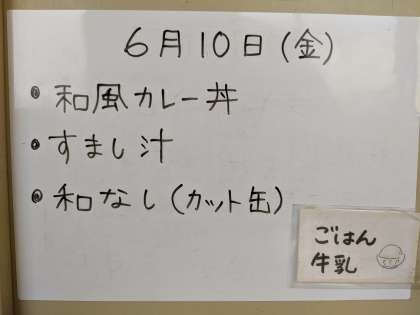 6月10日(金)
• 和風カレー丼
• すまし汁
• 和なし(カット缶)
ごはん
牛乳